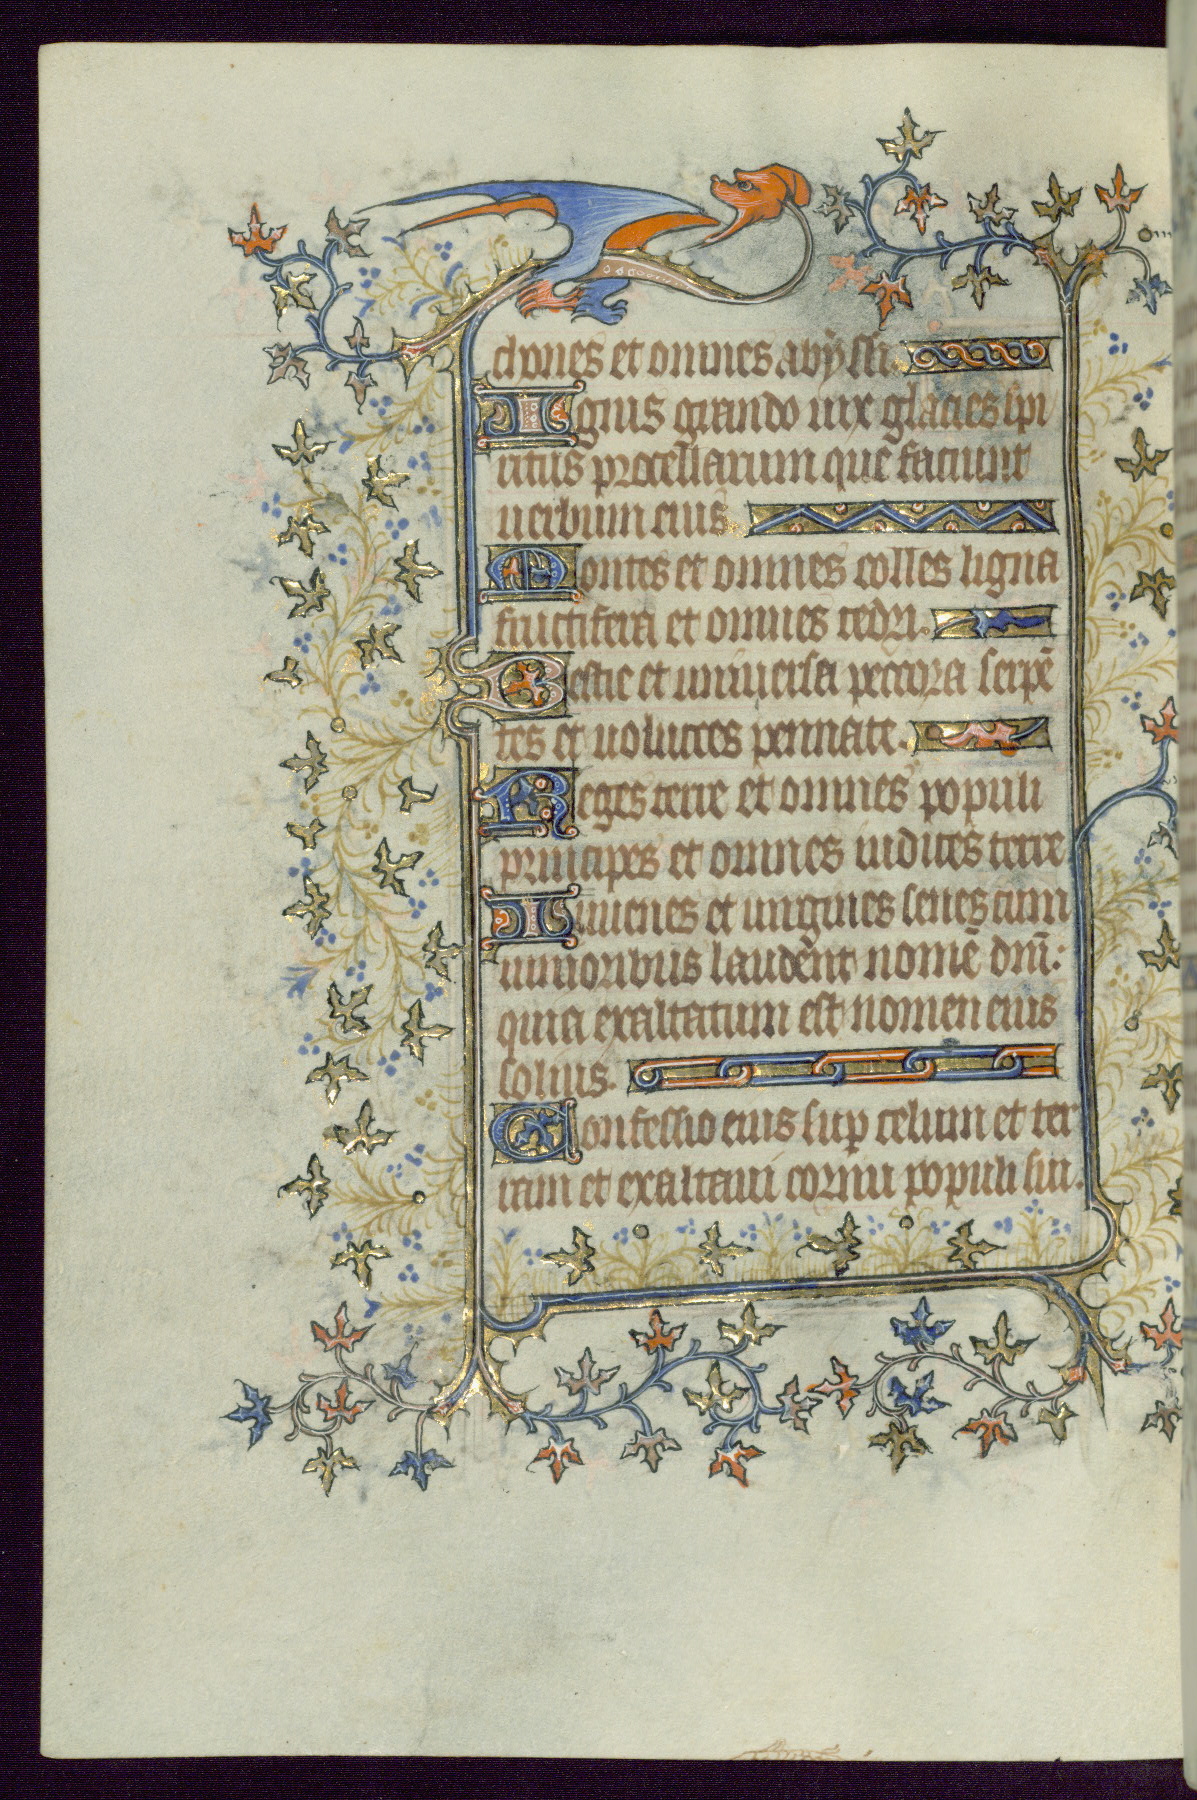 chones et omnes abyssi.
Ignis grando nix glacies spi
ritus procellarum que faciunt
uerbum eius.
Montes et omnes colles ligna
fructifera et omnes cedri.
Bestie et uniuersa peccora serpē
tes et uolucres pennate.
Reges terre et omnes populi
principes et omnes iudices terre
Iuuenes et uirgines senes cum
iunioribus laudent nomē dnī:
quia exaltatum est nomen eius
solius.
Confessio eius sup celum et ter
ram et exaltauit cornu populi sui.